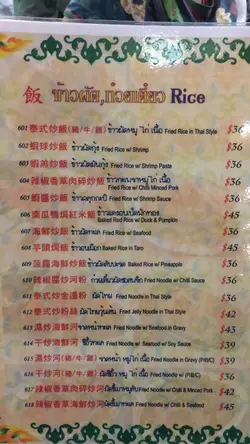 飯 ข้าวผัด,ก๋วยเตี๋ยว Rice
601 泰式炒飯(豬/牛/雞) ข้าวผัดหมู ไก่ เนื้อ Fried Rice in Thai Style $36
602 蝦球炒飯 ข้าวผัดกุ้ง Fried Rice w/ Shrimp $36
603 蝦膏炒飯 Fried Rice w/ Shrimp Paste $36
604 辣椒香草肉碎炒飯 ไก่ เนื้อ $36
Fried Rice w/ Chilli Minced Pork
605 蝦醬炒飯 Fried Rice w/ Shrimp Sauce $36
606 南瓜鴨焗紅米飯 $42
Baked Red Rice w/ Duck & Pumpkin
607 海鮮炒飯 ข้าวผัดทะเล Fried Rice w/ Seafood $36
608 芋頭焗飯 Baked Rice in Taro $45
609 菠蘿海鮮炒飯 ข้าวผัดสับปะรด Baked Rice w/ Pineapple $36
610 辣椒醬炒河粉 Fried Noodle w/ Chilli Sauce $36
611 泰式炒金邊粉 ผัดไทย Fried Noodle in Thai Style $36
612 泰式炒粉絲 ผัดไทยวุ้นเส้น Fried Jelly Noodle in Thai Style $42
613 濕炒海鮮河 ราดหน้าทะเล Fried Noodle w/ Seafood in Gravy $43
614 干炒海鮮河 ซีอิ๊วทะเล Fried Noodle w/ Seafood w/ Soy Sauce $39
615 濕炒河(豬/牛/雞) ราดหน้า หมู ไก่ เนื้อ Fried Noodle w/ Gravy (P/B/C) $39
616 干炒河(豬/牛/雞) ผัดซีอิ๊ว หมู ไก่ เนื้อ Fried Noodle w/ Gravy (P/B/C) $36
617 辣椒香草肉碎炒河 Fried Noodle w/ Chilli & Minced Pork $42
618 辣椒香草海鮮炒河 Fried Noodle w/ Chilli & Seafood $45